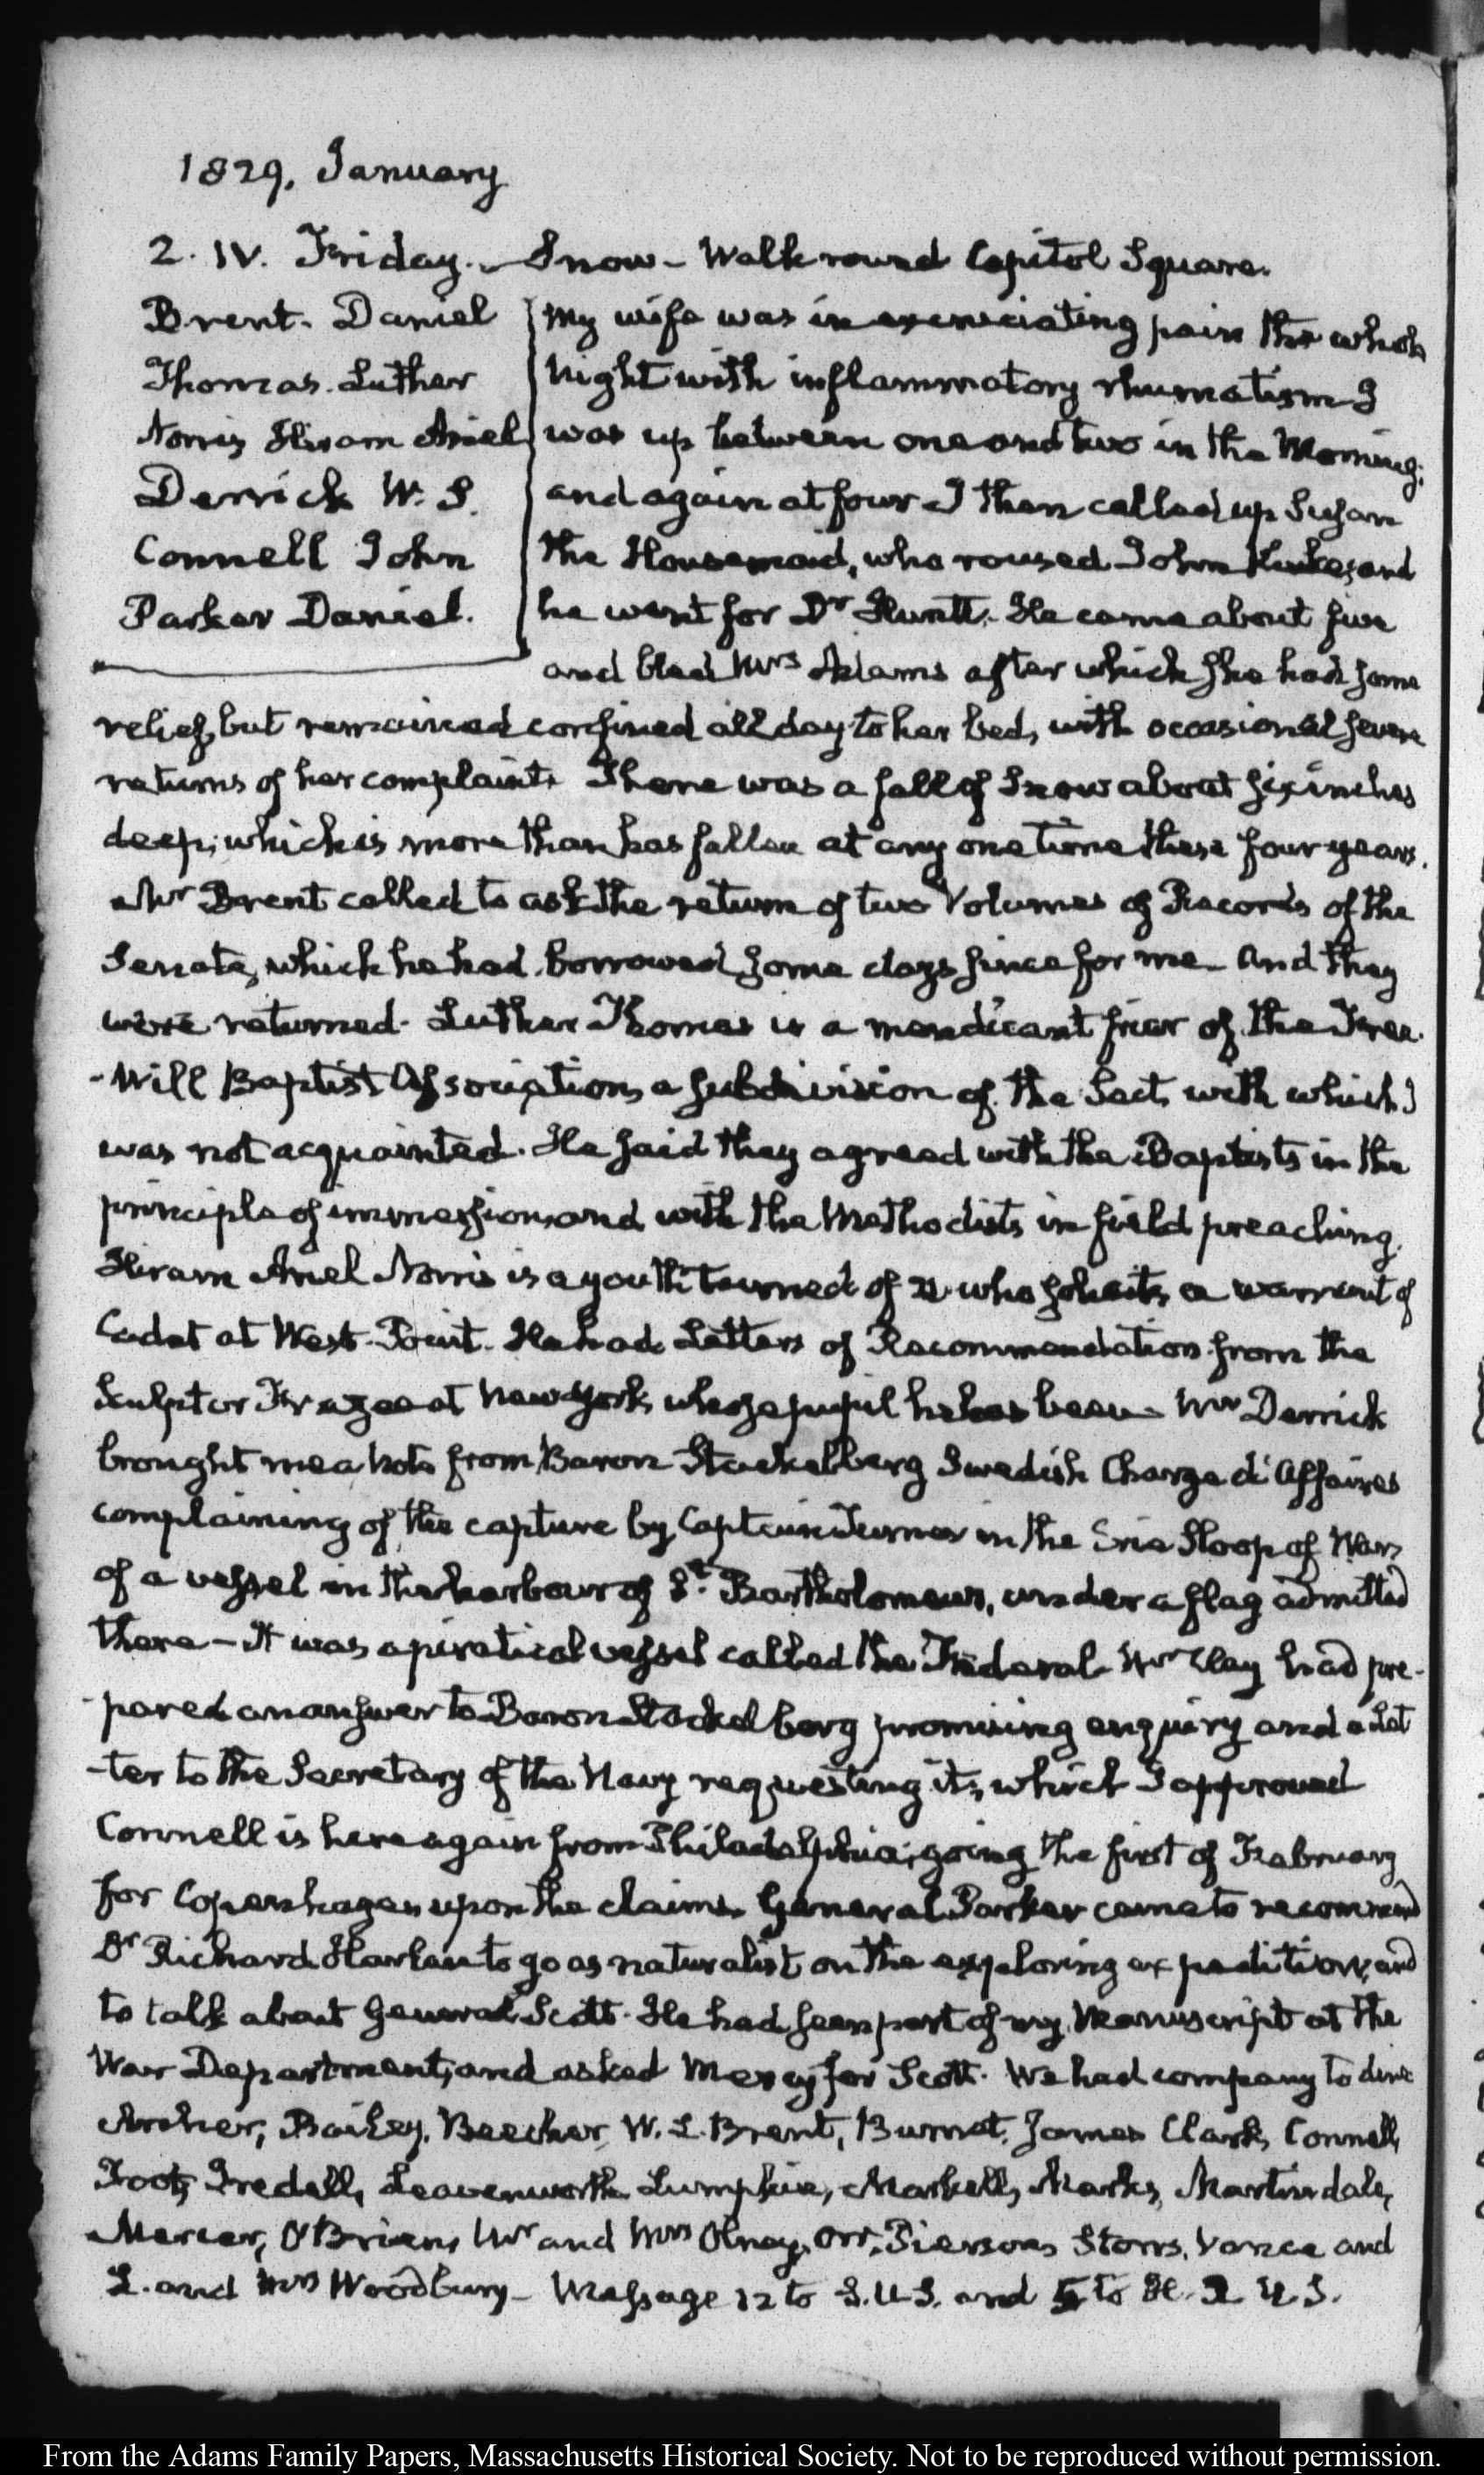 1829. January
2. IV. Friday. Snow - Walk round Capitol Square.
Brent. Daniel
Thomas. Luther
Norris Hiram Ariel
Derrick W. S.
Connell John
Parker Daniel.
My wife was in excruciating pain the whole
Night with inflammatory rhumatism I
was up between one and two in the Morning;
and again at four I then called up Susan
the Housemaid, who roused John Kirke, and
he went for Dr Huntt. He came about five
and bled Mrs Adams after which she had some
relief, but remained confined all day to her bed, with occasional severe
returns of her complaint. There was a fall of Snow about six inches
deep; which is more than has fallen at any one time these four years.
Mr Brent called to ask the return of two Volumes of Records of the
Senate, which he had borrowed some days since for me - And they
were returned. Luther Thomas is a mendicant friar of the Free-
-Will Baptist Association, a subdivision of the Sect, with which I
was not acquainted. He said they agreed with the Baptists in the
principle of immersion, and with the Methodists in field preaching.
Hiram Ariel Norris is a youth turned of 21 who solicits a warrant of
Cadet at West-Point. He had Letters of Recommendation from the
Sculptor Frazee at New York, whose pupil he has been. Mr Derrick
brought me a Note from Baron Stackelberg Swedish Chargé d'Affaires
complaining of the capture by Captain Turner in the Erie Sloop of War,
of a vessel in the harbour of St. Bartholomews, under a flag admitted
there - It was a piratical vessel called the Federal. Mr Clay had pre-
-pared an answer to Baron Stackelberg promising enquiry and a Let
-ter to the Secretary of the Navy requesting it, which I approved
Connell is here again from Philadelphia; going the first of February
for Copenhagen upon the claims. General Parker came to recommend
Dr Richard Harlan to go as naturalist on the exploring expedition, and
to talk about General Scott. He had seen part of my Manuscript at the
War Department, and asked Mercy for Scott. We had company to dine
Archer, Bailey, Beecher, W. L. Brent, Burnet, James Clark, Connell,
Foot, Iredell, Leavenworth Lumpkin, Markell, Marks, Martindale,
Mercer, O'Brien, Mr and Mrs Olney, Orr, Pierson, Storrs, Vance and
L. and Mrs Woodbury - Message 12 to S.U.S. and 5 to H. R. U. S.
From the Adams Family Papers, Massachusetts Historical Society. Not to be reproduced without permission.